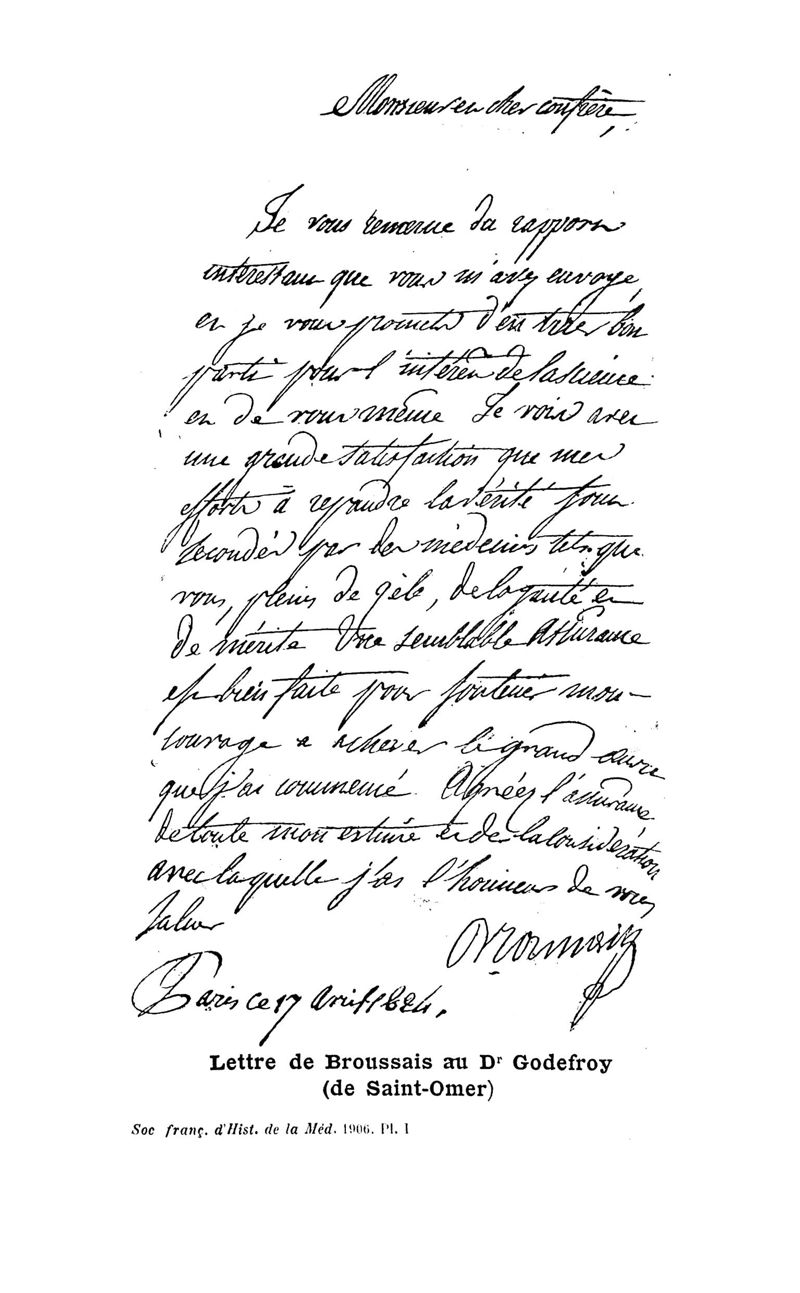 Monsieur et cher confrère,
Je vous remercie du rapport
intéressant que vous m'avez envoyé,
et je vous promets d'en tirer bon
parti pour l'intérêt de la science
et de vous même Je vois avec
une grande satisfaction que mes
efforts à répandre la vérité sont
secondés par des médecins tels que
vous, pleins de zèle, de loyauté et
de mérite Une semblable assurance
est bien faite pour soutenir mon
courage a achever le grand œuvre
que j'ai commencé. Agréez l'assurance
de toute mon estime et de la considération
avec laquelle j'ai l'honneur de vous
saluer
Broussais
Paris ce 17 avril 1824.
Lettre de Broussais au Dr Godefroy
(de Saint-Omer)
Soc franç. d'Hist. de la Méd. 1906. Pl. I